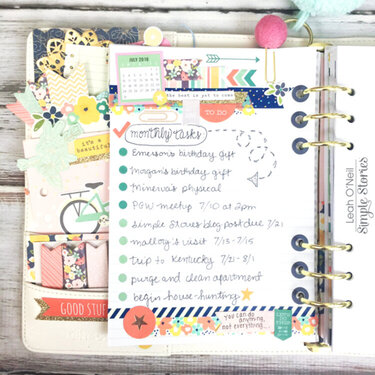 JULY 2018
the best is yet to come
TO DO
monthly tasks
Emerson's birthday gift
Morgan's birthday gift
Minerva's physical
PGW meetup 7/10 at 2pm
Simple Stories blog post due 7/21
mallory's visit 7/13-7/15
trip to Kentucky 7/21-8/1
purge and clean apartment
begin house-hunting
you can do anything,
not everything
it's a
beautiful
GOOD STU
Leah O'Neil
Simple Stories